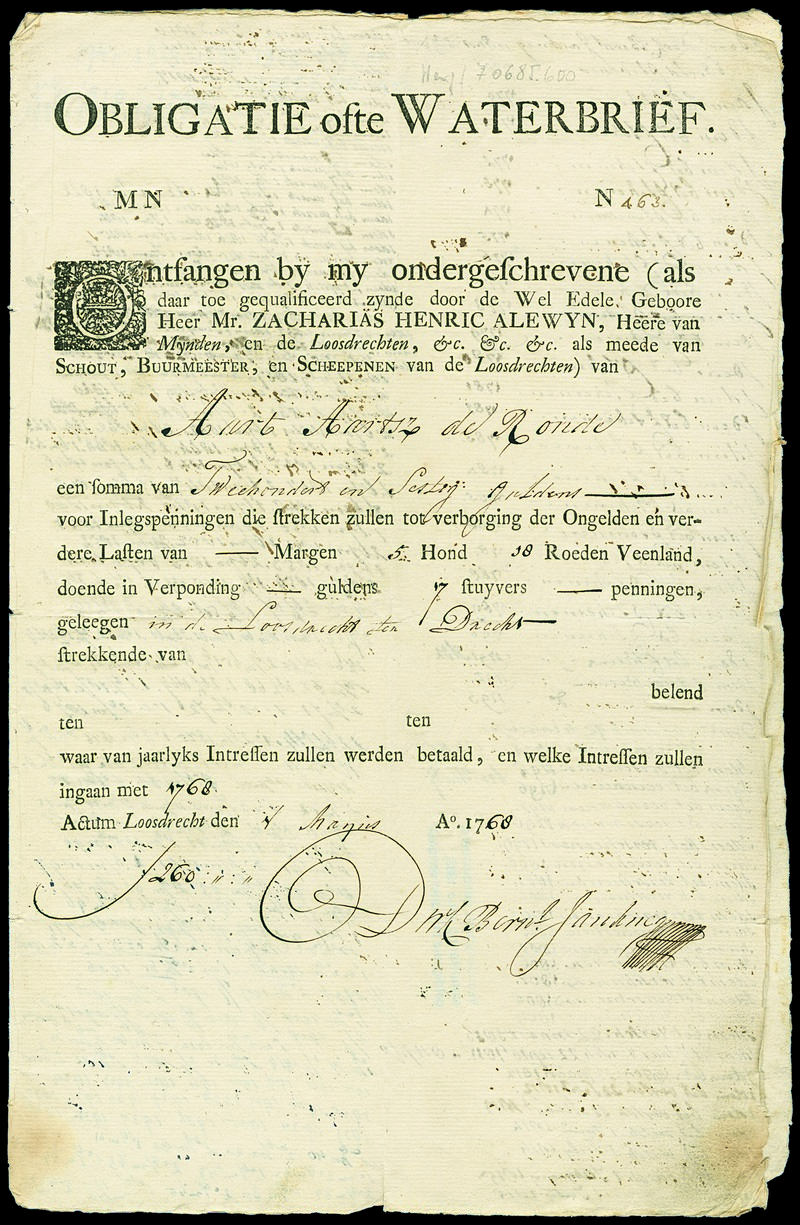 OBLIGATIE ofte WATERBRIEF.
M N N 463.
Ontfangen by my ondergeſchrevene (als
daar toe gequalificeerd zynde door de Wel Edele Geboore
Heer Mr. ZACHARIAS HENRIC ALEWYN, Heere van
Mynden, en de Loosdrechten, &c. &c. &c. als meede van
SCHOUT, BUURMEESTER, en SCHEEPENEN van de Loosdrechten) van
Aart Aartsz de Ronde
een ſomma van Tweehondert en Sestig guldens
voor Inlegspenningen die ſtrekken zullen tot verborging der Ongelden en ver-
dere Laſten van — Margen 5 Hond 18 Roeden Veenland,
doende in Verponding — guldens 7 ſtuyvers — penningen,
geleegen in de Loosdrecht ten Drecht
ſtrekkende van
belend
ten ten
waar van jaarlyks Intreſſen zullen werden betaald, en welke Intreſſen zullen
ingaan met 1768
Actum Loosdrecht den Mayus Ao. 1768
ƒ 260 „ „ „